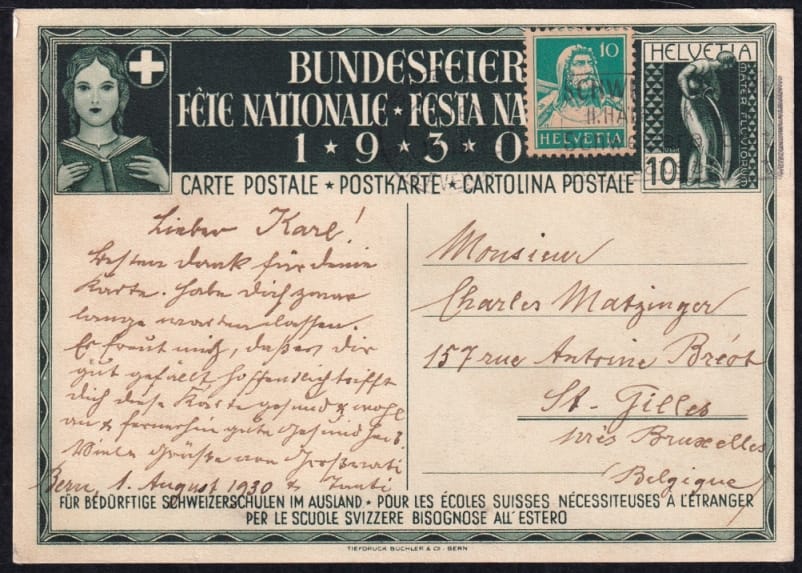 BUNDESFEIER
FÊTE NATIONALE ★ FESTA NA
1 ★ 9 ★ 3 ★ 0
10
HELVETIA
HELVETIA
MATER FLUVIORUM
10
CARTE POSTALE ★ POSTKARTE ★ CARTOLINA POSTALE
Lieber Karl!
Besten Dank für deine
Karte. Habe dich zwar
lange warten lassen.
Es freut mich, daß es dir
gut gefällt hoffentlich trifft
dich diese Karte gesund & wohl
an & fernerhin gute Gesundheit
Viele Grüße von
Bern, 1. August 1930 & Tanti
Monsieur
Charles Matzinger
157 rue Antoine Bréot
St-Gilles
près Bruxelles
Belgique
FÜR BEDÜRFTIGE SCHWEIZERSCHULEN IM AUSLAND ★ POUR LES ÉCOLES SUISSES NÉCESSITEUSES A L'ÉTRANGER
PER LE SCUOLE SVIZZERE BISOGNOSE ALL' ESTERO
TIEFDRUCK BÜCHLER & CO. BERN